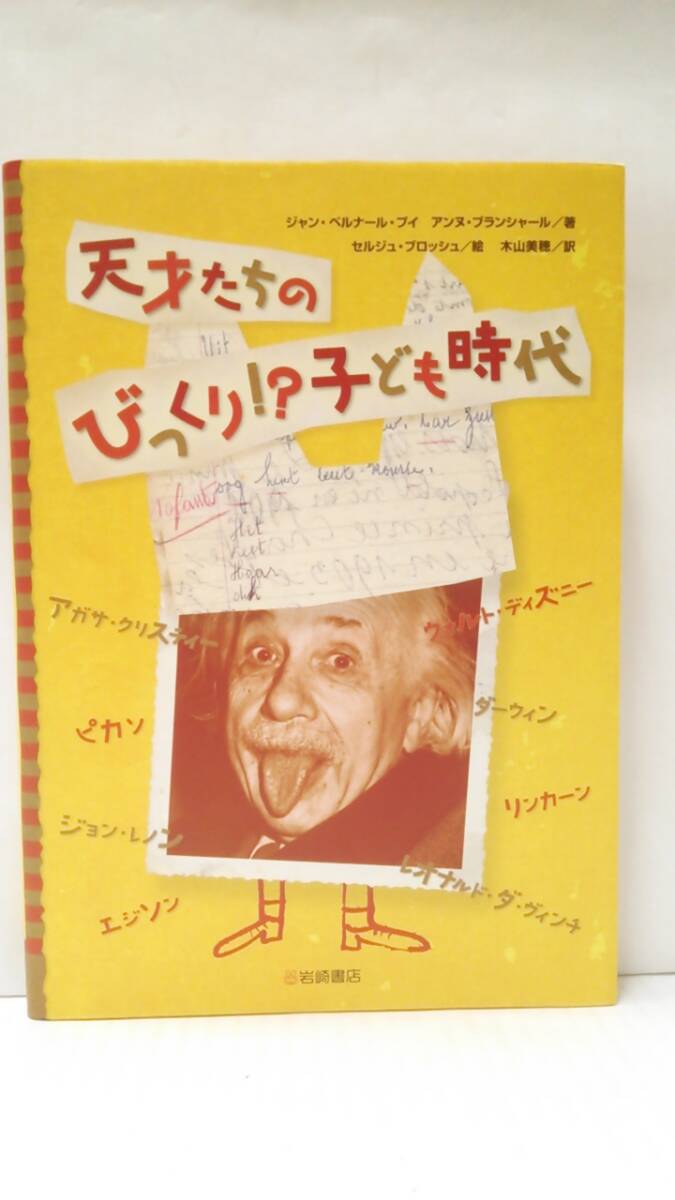 ジャン・ベルナール・プイ アンヌ・ブランシャール／著
セルジュ・ブロッシュ／絵 木山美穂／訳
天才たちの
びっくり!?子ども時代
Hit
アガサ・クリスティー
ウォルト・ディズニー
ピカソ
ダーウィン
ジョン・レノン
リンカーン
エジソン
レオナルド・ダ・ヴィンチ
岩崎書店